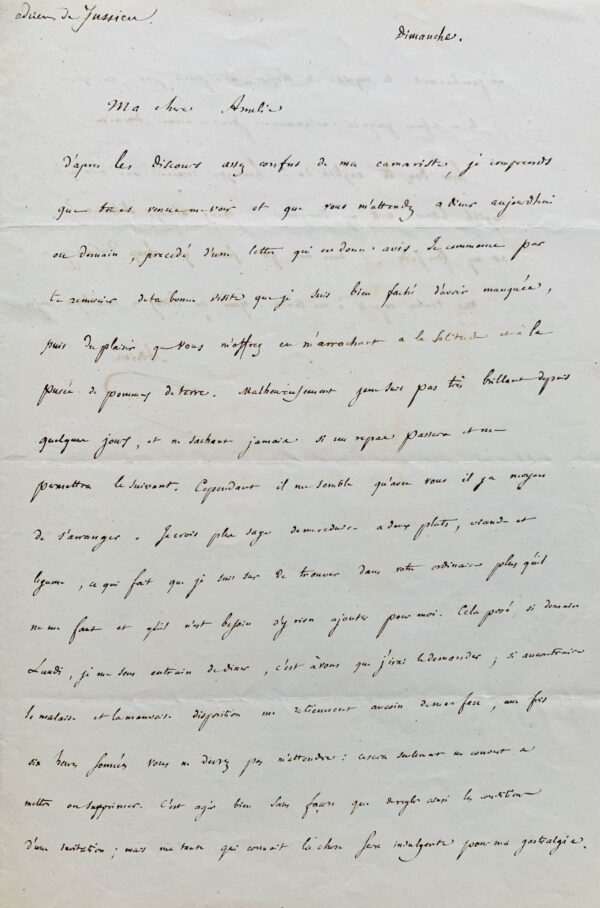 adrien de Jussieu.
Dimanche.
Ma chere Amelie
d'apres les discours assez confus de ma camariste, je comprends
que tu es venue me voir et que vous m'attendez a diner aujourd'hui
ou demain, precedé d'une lettre qui en donne avis. Je commence par
te remercier de ta bonne visite que je suis bien faché d'avoir manquée,
puis du plaisir que vous m'offrez en m'arrachant a la solitude et à la
purée de pommes de terre. Malheureusement je ne suis pas très brillant depuis
quelques jours, et ne sachant jamais si un repas passera et me
permettra le suivant. Cependant il me semble qu'avec vous il y a moyen
de s'arranger. Je crois plus sage de me reduire a deux plats, viande et
legume, ce qui fait que je suis sur de trouver dans votre ordinaire plus qu'il
ne me faut et qu'il n'est besoin d'y rien ajouter pour moi. Cela posé, si demain
Lundi, je me sens en train de diner, c'est à vous que j'irai le demander ; si au contraire
le malaise et la mauvaise disposition me retiennent au coin de mon feu, une fois
six heures sonnées vous ne devrez pas m'attendre : ce sera seulement un couvert a
mettre ou supprimer. C'est agir bien sans façon que de regler ainsi les conditions
d'une invitation ; mais ma tante qui connait la chose sera indulgente pour ma gastralgie.